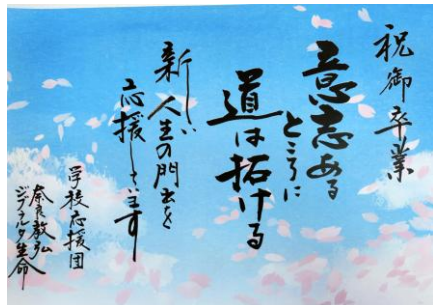 祝御卒業
意志ある
ところに
道は拓ける
新しい人生の門出を
応援しています
学校応援団
奈良教弘
ジブラルタ生命